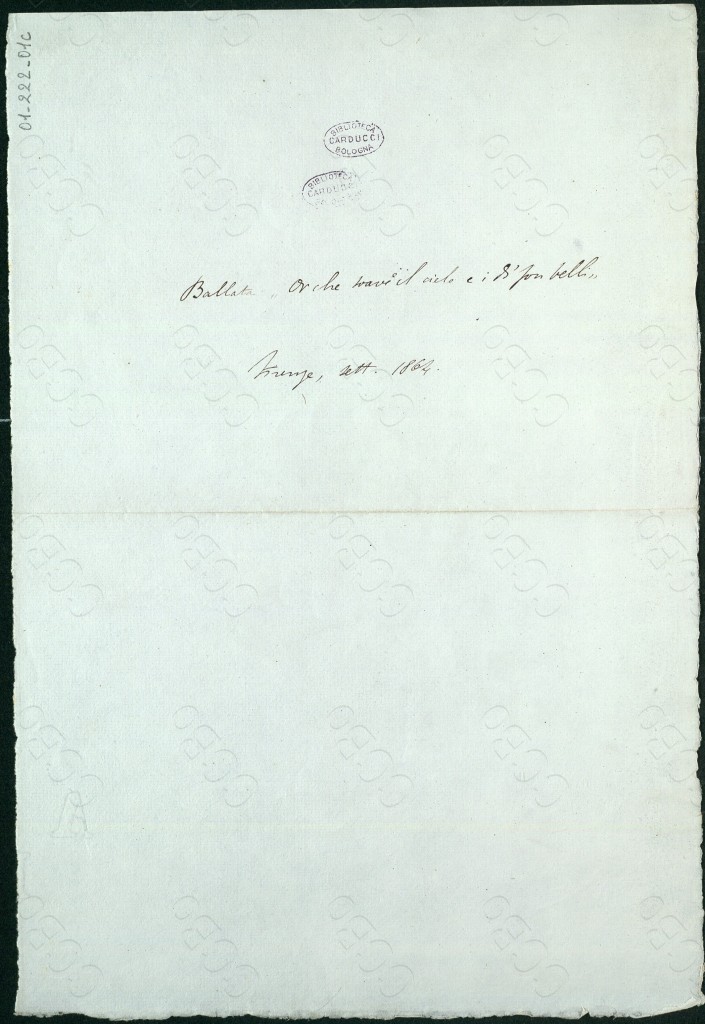 01-222-01c
BIBLIOTECA
CARDUCCI
BOLOGNA
BIBLIOTECA
CARDUCCI
Ballata. Or che soave il cielo e i dì son belli
Firenze, sett. 1864.